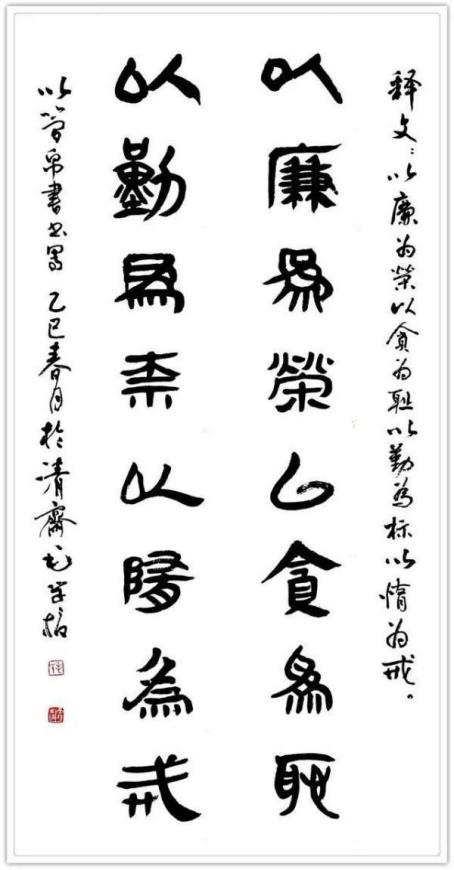 释文：以廉为荣以贪为耻以勤為标以惰为戒。
以廉為榮以貪為耻
以勤為标以惰為戒
以简帛書书写 乙巳春月於清齋